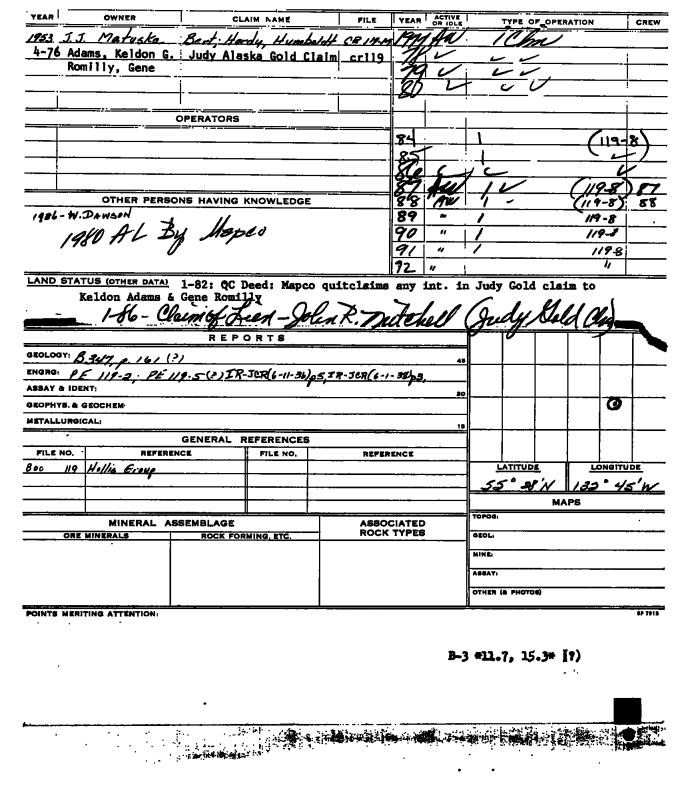 YEAR OWNER CLAIM NAME FILE YEAR ACTIVE OR IDLE TYPE OF OPERATION CREW
1953 J.J. Matuska. Bert, Hardy, Humboldt CR 119-M
4-76 Adams, Keldon G. Judy Alaska Gold Claim cr119 78 ✓ ✓ ✓
Romilly, Gene 79 ✓ ✓ ✓
80 ✓ ✓ ✓
OPERATORS
84 1 (119-8)
85 1 ✓
86
87 AW 1 ✓ (119-8) 87
OTHER PERSONS HAVING KNOWLEDGE 88 AW 1 - (119-8) 88
1986-W. DAWSON 89 " 1 119-8
1980 AL By Mapco 90 " 1 119-8
91 " 1 119-8
92 " "
LAND STATUS (OTHER DATA) 1-82: QC Deed: Mapco quitclaims any int. in Judy Gold claim to
Keldon Adams & Gene Romilly
1-86 - Claim of Lien - John R. Mitchell (Judy Gold Clm)
REPORTS
GEOLOGY: B 347 p. 161 (?) 45
ENGRG: PE 119-2; PE 119-5(?) IR-JCR(6-11-36)p5, IR-JCR(6-1-38)p3,
ASSAY & IDENT: 30
GEOPHYS. & GEOCHEM:
METALLURGICAL: 15
GENERAL REFERENCES
FILE NO. REFERENCE FILE NO. REFERENCE
119 Hollis Group
LATITUDE LONGITUDE
55° 28'N 132° 45'W
MAPS
MINERAL ASSEMBLAGE ASSOCIATED ROCK TYPES
ORE MINERALS ROCK FORMING, ETC.
TOPOG:
GEOL:
MINE:
ASSAY:
OTHER (& PHOTOS)
POINTS MERITING ATTENTION:
B-3 #11.7, 15.3" [?)